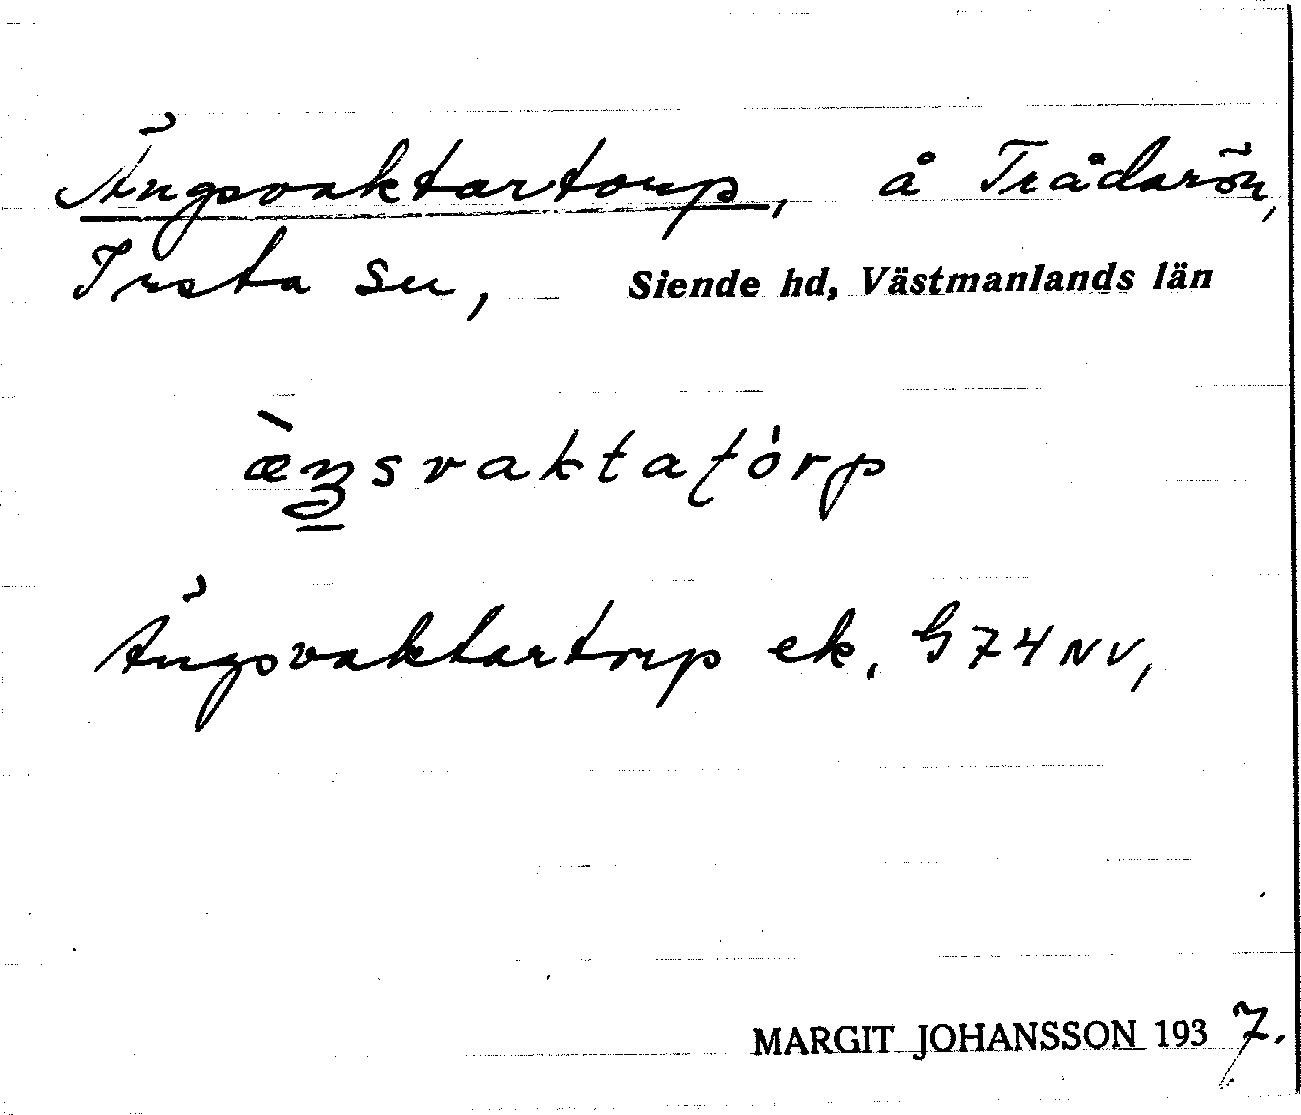 Ängsvaktartorp, å Trådarön,
Irsta sn, Siende hd, Västmanlands län
æ̀ŋsvaktatórp
Ängsvaktartorp ek. G74NV,
MARGIT JOHANSSON 1937.